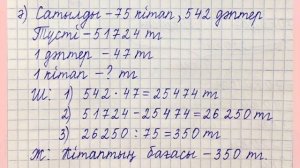 ә) Сатылды - 75 кітап, 542 дәптер
Түсті - 51724 тг
1 дәптер - 47 тг
1 кітап - ? тг
Ш: 1) 542 · 47 = 25474 тг
2) 51724 - 25474 = 26 250 тг
3) 26250 : 75 = 350 тг.
Ж: Кітаптың бағасы - 350 тг.